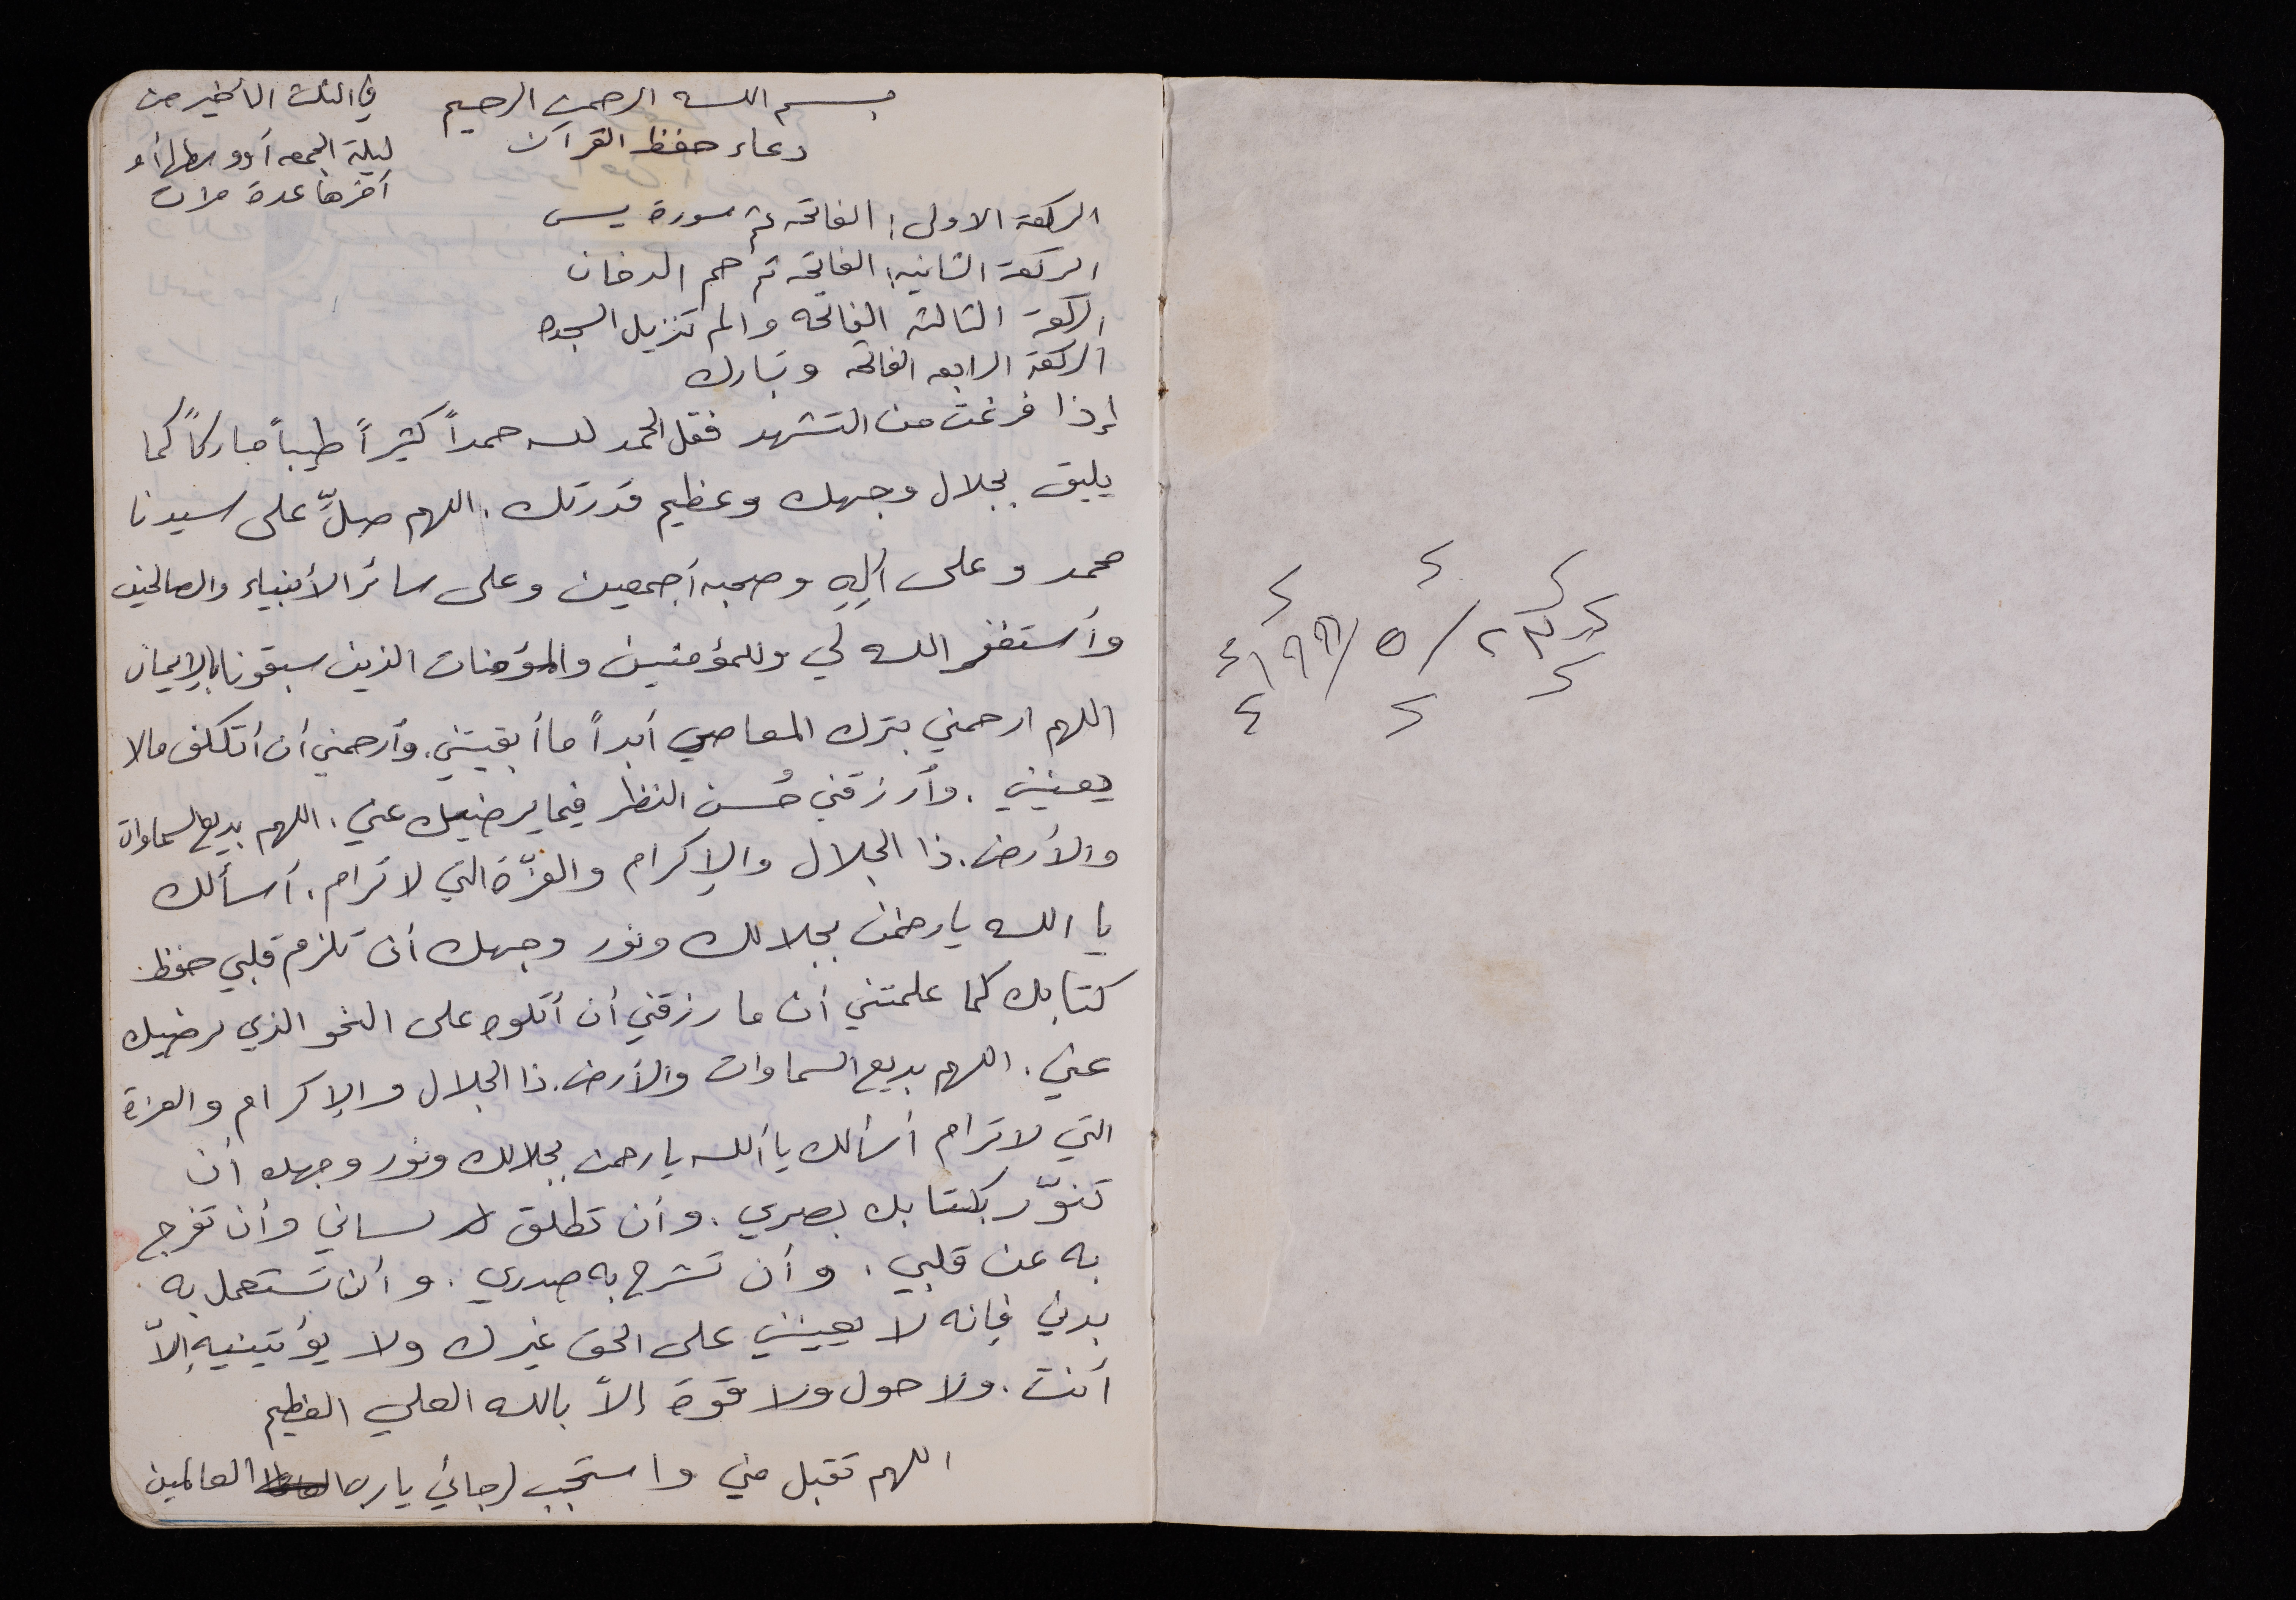 ٢٣/٥/١٩٩
بسم الله الرحمن الرحيم
دعاء حفظ القرآن
في الثلث الأخير من
ليلة الجمعه أو وسطها أو
آخرها عدة مرات
الركعة الاولى: الفاتحه ثم سورة يس
الركعة الثانيه: الفاتحه ثم حم الدخان
الركعة الثالثه الفاتحه والم تنزيل السجده
الركعة الرابعه الفاتحه وتبارك
إذا فرغت من التشهد فقل الحمد لله حمداً كثيراً طيباً مباركاً كما
يليق بجلال وجهك وعظيم قدرتك. اللهم صلِّ على سيدنا
محمد وعلى آلِهِ وصحبه أجمعين وعلى سائر الأنبياء والصالحين
وأستغفر الله لي وللمؤمنين والمؤمنات الذين سبقونا بالإيمان
اللهم ارحمني بترك المعاصي أبداً ما أبقيتني. وأرحمني أن أتكلف مالا
يعنيني. وأرزقني حُسن النظر فيما يرضيك عني. اللهم بديع السماوات
والأرض. ذا الجلال والإكرام والعزّة التي لا ترام. أسألك
يا الله يا رحمن بجلالك ونور وجهك أن تلزم قلبي حفظ
كتابك كما علمتني أن ما رزقني أن أتلوه على النحو الذي يرضيك
عني. اللهم بديع السماوات والأرض. ذا الجلال والإكرام والعزة
التي لا ترام أسألك يا ألله يا رحمن بجلالك ونور وجهك أن
تنوّر بكتابك بصري. وأن تطلق لساني وأن تفرج
به عن قلبي. وأن تشرح به صدري. وأن تستعمل به
بدني فإنه لا يعينني على الحق غيرك ولا يؤتينيه إلاّ
أنت. ولا حول ولا قوة إلاّ بالله العلي العظيم
اللهم تقبل مني واستجب لرجائي يا رب العالمين